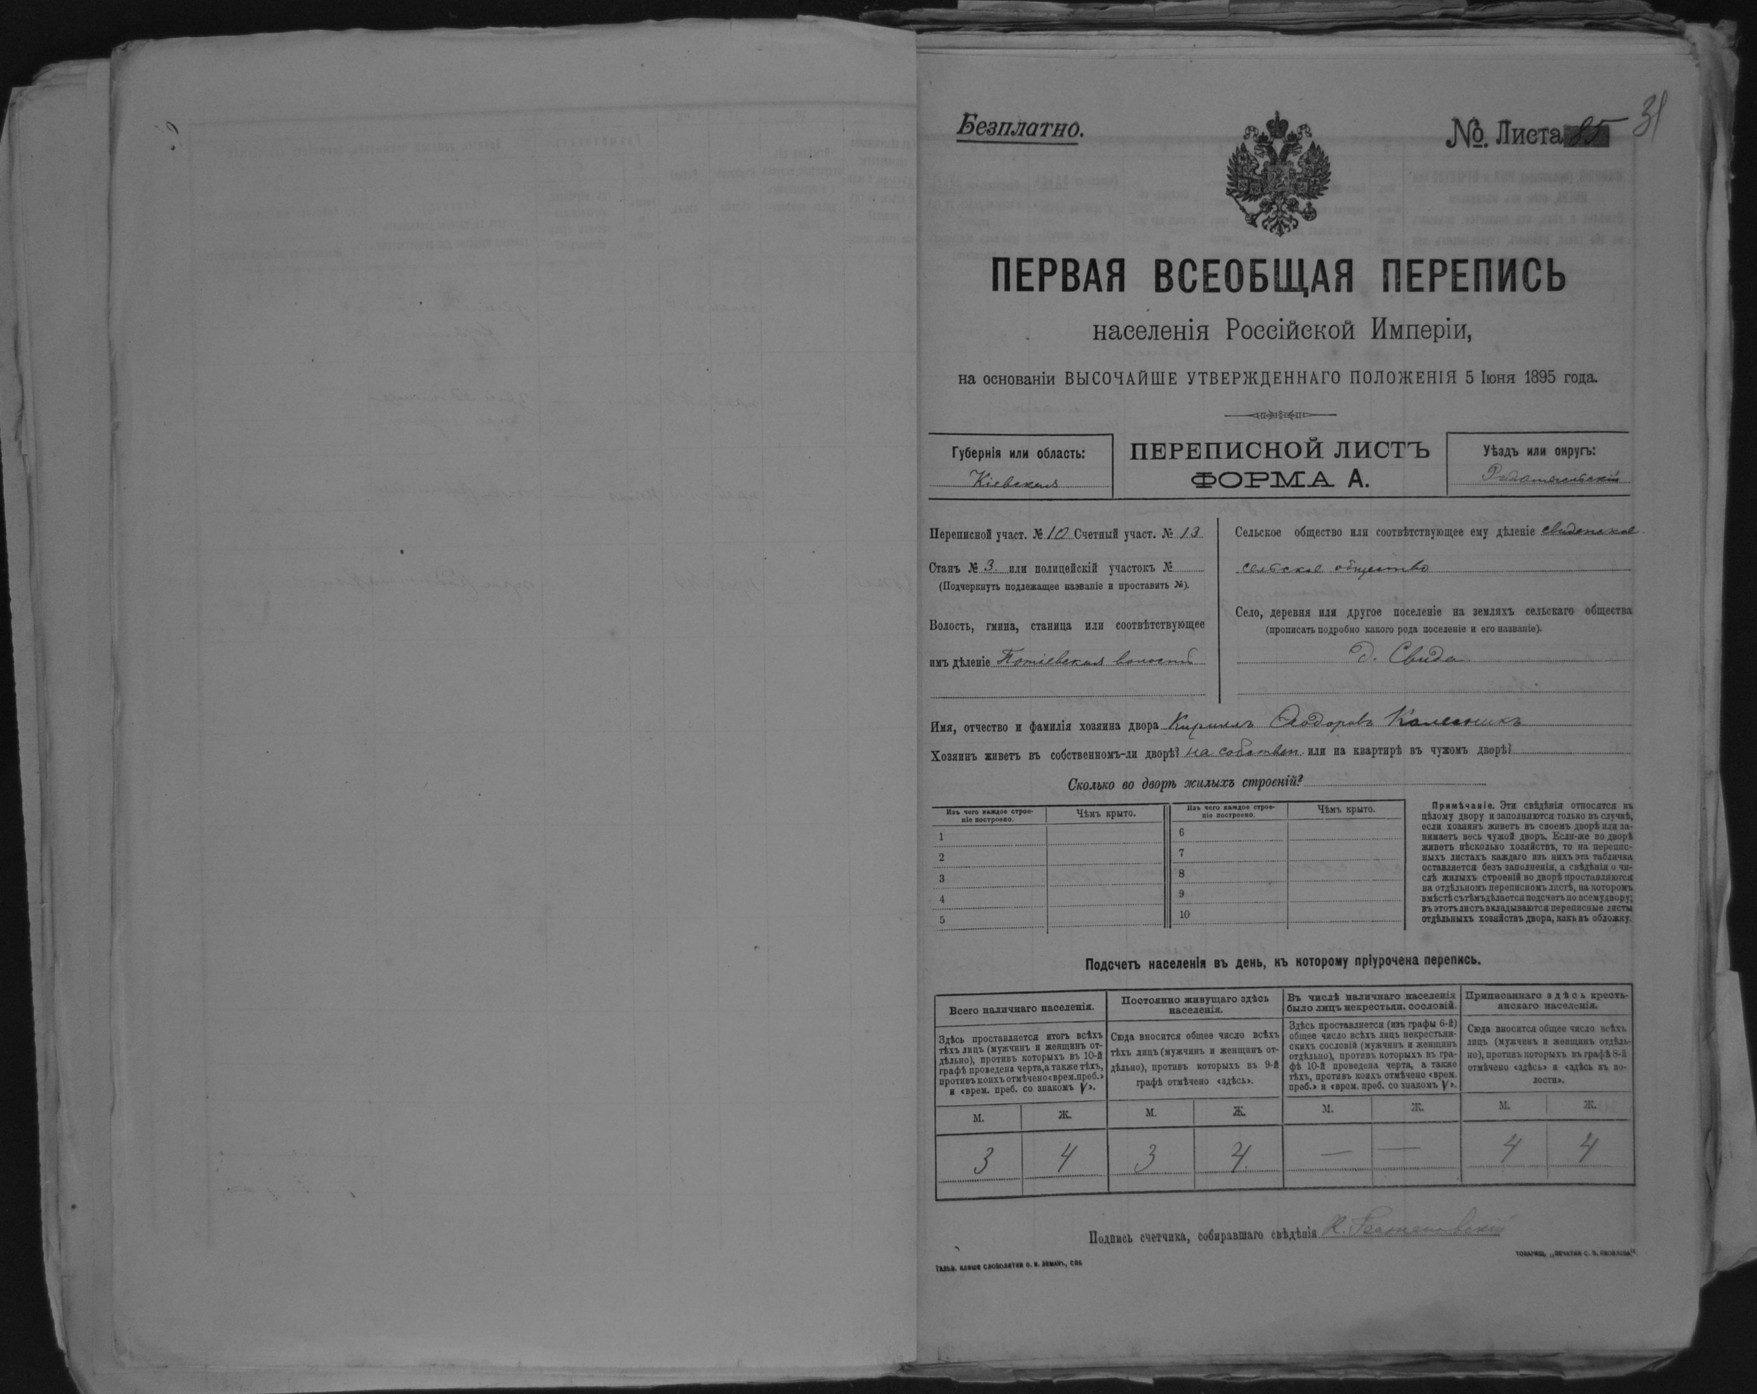 Безплатно.
№. Листа 85
31
ПЕРВАЯ ВСЕОБЩАЯ ПЕРЕПИСЬ
населенія Россійской Имперіи,
на основаніи ВЫСОЧАЙШЕ УТВЕРЖДЕННАГО ПОЛОЖЕНІЯ 5 Іюня 1895 года.
Губернія или область:
Кіевская
ПЕРЕПИСНОЙ ЛИСТЪ
ФОРМА А.
Уѣздъ или округъ:
Радомысльскій
Переписной участ. № 10 Счетный участ. № 13
Станъ № 3. или полицейскій участокъ №
(Подчеркнуть подлежащее названіе и проставить №).
Волость, гмина, станица или соотвѣтствующее
имъ дѣленіе Потіевская волость
Сельское общество или соотвѣтствующее ему дѣленіе
сельское общество
Село, деревня или другое поселеніе на земляхъ сельскаго общества
(прописать подробно какого рода поселеніе и его названіе).
д. Свида
Имя, отчество и фамилія хозяина двора Кириллъ Ѳеодоровъ Колесникъ
Хозяинъ живетъ въ собственномъ-ли дворѣ? на собствен или на квартирѣ въ чужомъ дворѣ?
Сколько во дворѣ жилыхъ строеній?
Изъ чего каждое строе-
ніе построено.
Чѣмъ крыто.
Изъ чего каждое строе-
ніе построено.
Чѣмъ крыто.
1
2
3
4
5
6
7
8
9
10
Примѣчаніе. Эти свѣдѣнія относятся къ
цѣлому двору и заполняются только въ случаѣ,
если хозяинъ живетъ въ своемъ дворѣ или за-
нимаетъ весь чужой дворъ. Если-же во дворѣ
живетъ нѣсколько хозяйствъ, то на перепис-
ныхъ листахъ каждаго изъ нихъ эта табличка
оставляется безъ заполненія, а свѣдѣнія о чи-
слѣ жилыхъ строеній во дворѣ проставляются
на отдѣльномъ переписномъ листѣ, на которомъ
вмѣстѣ съ тѣмъ дѣлается подсчетъ по всему двору;
въ этотъ листъ вкладываются переписные листы
отдѣльныхъ хозяйствъ двора, какъ въ обложку.
Подсчетъ населенія въ день, къ которому пріурочена перепись.
Всего наличнаго населенія.
Здѣсь проставляется итогъ всѣхъ
тѣхъ лицъ (мужчинъ и женщинъ от-
дѣльно), противъ которыхъ въ 10-й
графѣ проведена черта, а также тѣхъ,
противъ коихъ отмѣчено «врем. преб.»
и «врем. преб. со знакомъ V».
Постоянно живущаго здѣсь
населенія.
Сюда вносится общее число всѣхъ
тѣхъ лицъ (мужчинъ и женщинъ от-
дѣльно), противъ которыхъ въ 9-й
графѣ отмѣчено «здѣсь».
Въ числѣ наличнаго населенія
было лицъ некрестьян. сословій.
Здѣсь проставляется (изъ графы 6-й)
общее число всѣхъ лицъ некрестьян-
скихъ сословій (мужчинъ и женщинъ
отдѣльно), противъ которыхъ въ гра-
фѣ 10-й проведена черта, а также
тѣхъ, противъ коихъ отмѣчено «врем.
преб.» и «врем. преб. со знакомъ V».
Приписаннаго здѣсь кресть-
янскаго населенія.
Сюда вносится общее число всѣхъ
лицъ (мужчинъ и женщинъ отдѣль-
но), противъ которыхъ въ графѣ 8-й
отмѣчено «здѣсь» и «здѣсь къ во-
лости».
М. Ж. М. Ж. М. Ж. М. Ж.
3 4 3 4 — — 4 4
Подпись счетчика, собиравшаго свѣдѣнія